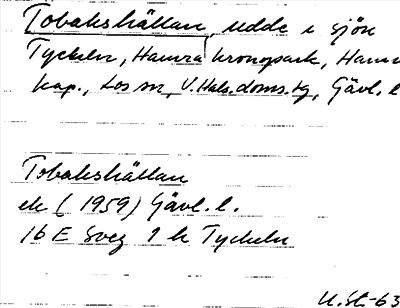 Tobakshällan, udde i sjön
Tyckeln, Hamra kronopark, Hamra
kap., Los sn, V. Häls. doms. tg, Gävl. l
Tobakshällan
ek (1959) Gävl. l.
16 E Sveg 9 h Tyckeln
U. St. -63